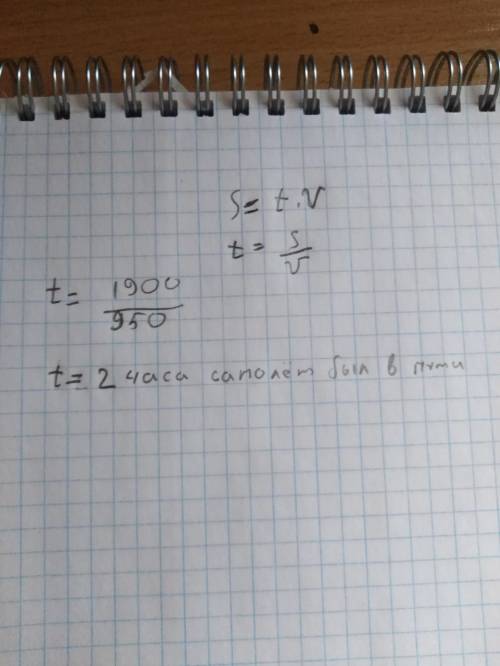 S = t · V
t = S / V
t = 1900 / 950
t = 2 часа самолёт был в пути